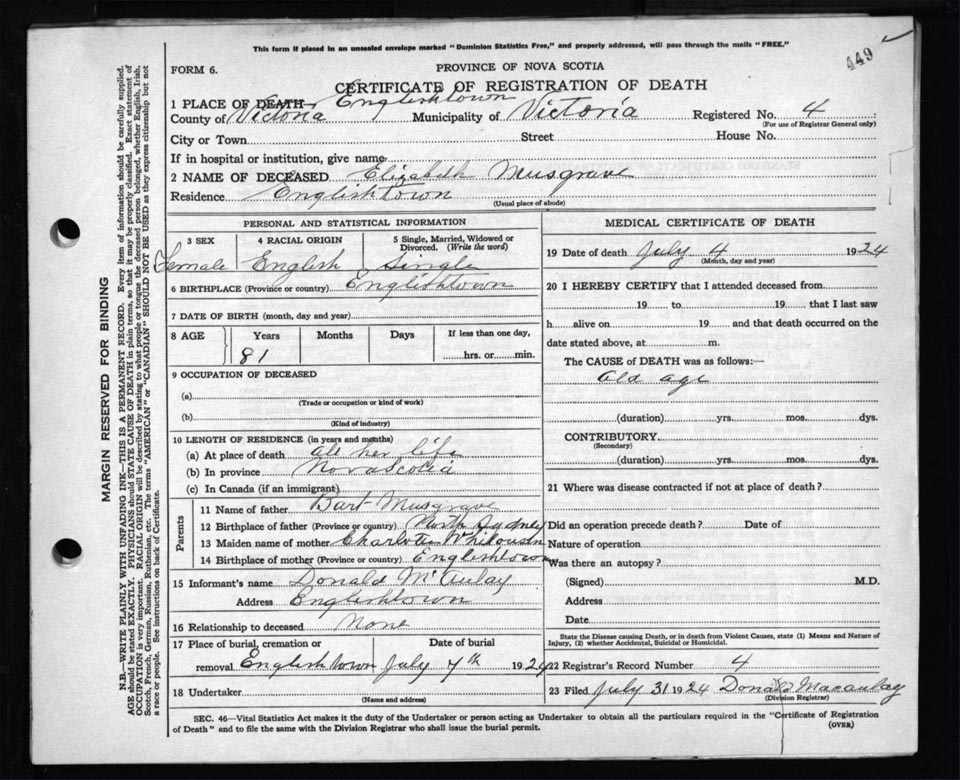 This form if placed in an unsealed envelope marked "Dominion Statistics Free," and properly addressed, will pass through the mails "FREE."
449
FORM 6.
PROVINCE OF NOVA SCOTIA
CERTIFICATE OF REGISTRATION OF DEATH
1 PLACE OF DEATH Englishtown
County of Victoria Municipality of Victoria Registered No. 4
(For use of Registrar General only)
City or Town Street House No.
If in hospital or institution, give name
2 NAME OF DECEASED Elizabeth Musgrave
Residence Englishtown
(Usual place of abode)
PERSONAL AND STATISTICAL INFORMATION
3 SEX 4 RACIAL ORIGIN 5 Single, Married, Widowed or
Divorced. (Write the word)
Female English Single
6 BIRTHPLACE (Province or country) Englishtown
7 DATE OF BIRTH (month, day and year)
8 AGE Years Months Days If less than one day,
81 hrs. or min.
9 OCCUPATION OF DECEASED
(a)
(Trade or occupation or kind of work)
(b)
(Kind of industry)
10 LENGTH OF RESIDENCE (in years and months)
(a) At place of death all her life
(b) In province Nova Scotia
(c) In Canada (if an immigrant)
Parents
11 Name of father Bart Musgrave
12 Birthplace of father (Province or country) North Sydney
13 Maiden name of mother Charlotte
14 Birthplace of mother (Province or country) Englishtown
15 Informant's name Donald McAulay
Address Englishtown
16 Relationship to deceased None
17 Place of burial, cremation or Date of burial
removal Englishtown July 7th 1924
18 Undertaker
(Name and address)
MEDICAL CERTIFICATE OF DEATH
19 Date of death July 4 1924
(Month, day and year)
20 I HEREBY CERTIFY that I attended deceased from
19 to 19 that I last saw
h alive on 19 and that death occurred on the
date stated above, at m.
The CAUSE of DEATH was as follows:—
Old age
(duration) yrs. mos. dys.
CONTRIBUTORY
(Secondary)
(duration) yrs. mos. dys.
21 Where was disease contracted if not at place of death?
Did an operation precede death? Date of
Nature of operation
Was there an autopsy?
(Signed) M.D.
Address
Date
State the Disease causing Death, or in death from Violent Causes, state (1) Means and Nature of
Injury, (2) whether Accidental, Suicidal or Homicidal.
22 Registrar's Record Number 4
23 Filed July 31 1924 Donald Macaulay
(Division Registrar)
SEC. 46—Vital Statistics Act makes it the duty of the Undertaker or person acting as Undertaker to obtain all the particulars required in the "Certificate of Registration
of Death" and to file the same with the Division Registrar who shall issue the burial permit.
(OVER)
MARGIN RESERVED FOR BINDING
N.B.—WRITE PLAINLY WITH UNFADING INK—THIS IS A PERMANENT RECORD. Every item of information should be carefully supplied.
AGE should be stated EXACTLY. PHYSICIANS should STATE CAUSE OF DEATH in plain terms, so that it may be properly classified. Exact statement of
OCCUPATION is very important. RACIAL ORIGIN will be described by stating to what people or tongue the deceased person belonged, whether English, Irish,
Scotch, French, German, Russian, Ruthenian, etc. The terms "AMERICAN" or "CANADIAN" SHOULD NOT BE USED as they express citizenship but not
a race or people. See instructions on back of Certificate.